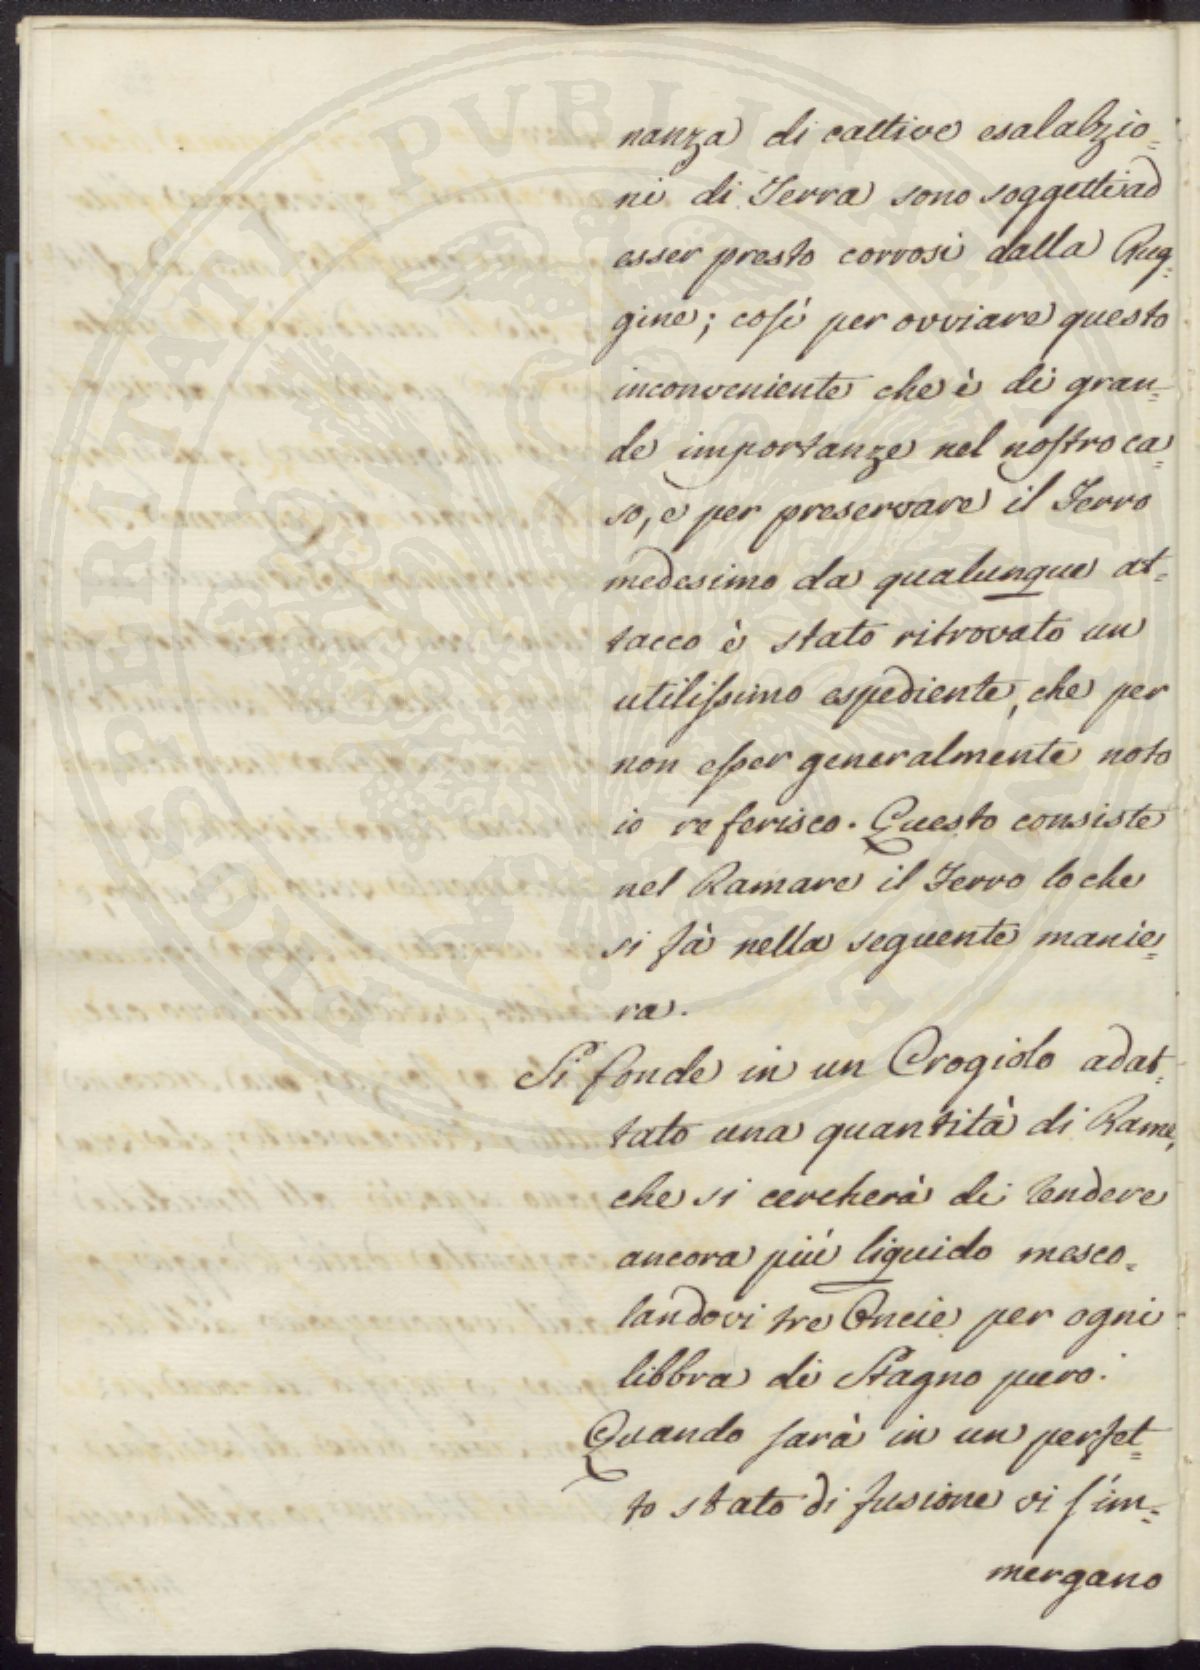 nanza di cattive esalabzio=
ni di Terra sono soggetti ad
esser presto corrosi dalla Rug=
gine; così per ovviare questo
inconveniente che è di gran=
de importanze nel nostro ca=
so, e per preservare il Ferro
medesimo da qualunque at=
tacco è stato ritrovato un
utilissimo espediente, che per
non esser generalmente noto
io referisco. Questo consiste
nel Ramare il Ferro lo che
si fà nella seguente manie=
ra.
Si fonde in un Crogiolo adat=
tato una quantità di Rame,
che si cercherà di rendere
ancora più liquido mesco=
landovi tre Oncie per ogni
libbra di Stagno puro.
Quando sarà in un perfet=
to stato di fusione vi s'im=
mergano
PROSPERITATI PUBLICAE